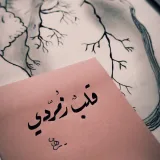 قلبٌ زمردي